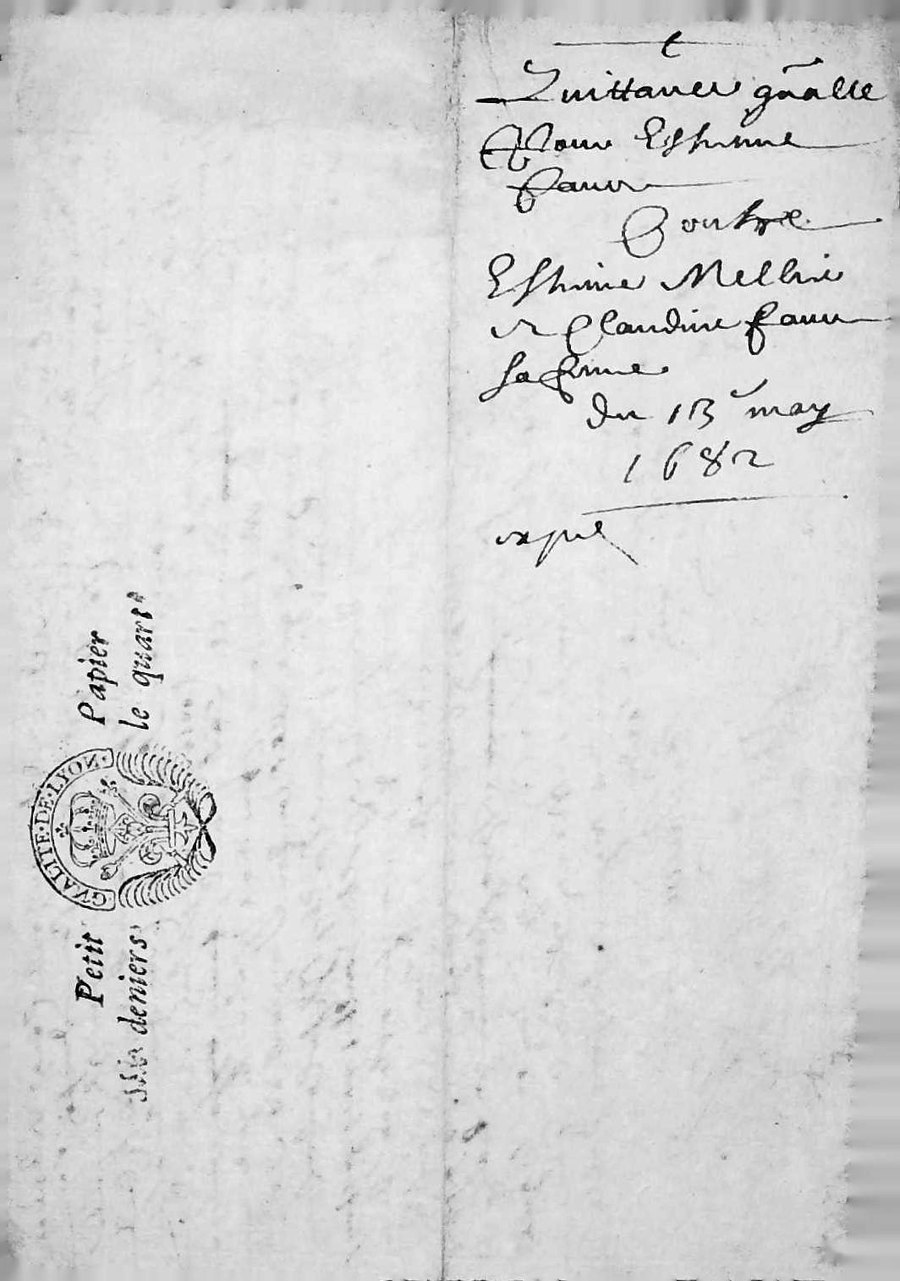 Quittance gnalle
Pour Estienne
faure
Contre
Estienne Mellier
et Claudine faure
sa feme
du 13 may
1682
expé
Petit Papier
deniers le quart
GNALITE·DE·LYON·